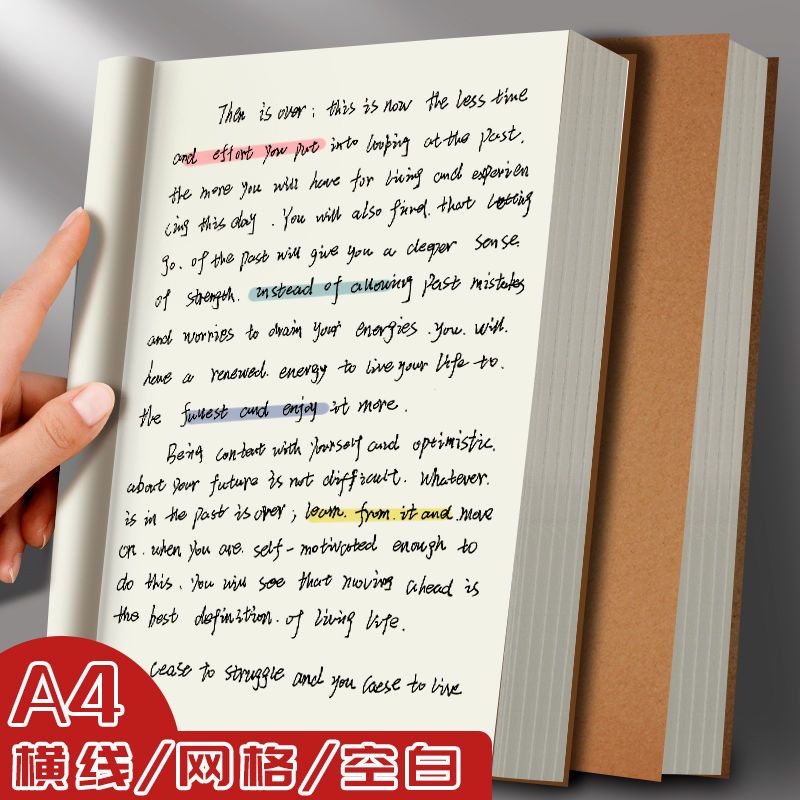 Then is over; this is now the less time
and effort you put into looping at the past.
the more you will have for living and experien
cing this day. You will also find. that letting
go. of the past will give you a deeper sense.
of strength. instead of allowing past mistakes
and worries to drain your energies. you. will.
have a renewed. energy to live your life to.
the fullest and enjoy it more.
Being content with yourself and optimistic.
about your future is not difficult. Whatever.
is in the past is over; learn. from. it and. move
on. when you are. self-motivated enough to
do this. You will see that moving ahead is
the best definition. of living life.
cease to struggle and you caese to live
A4
横线/网格/空白